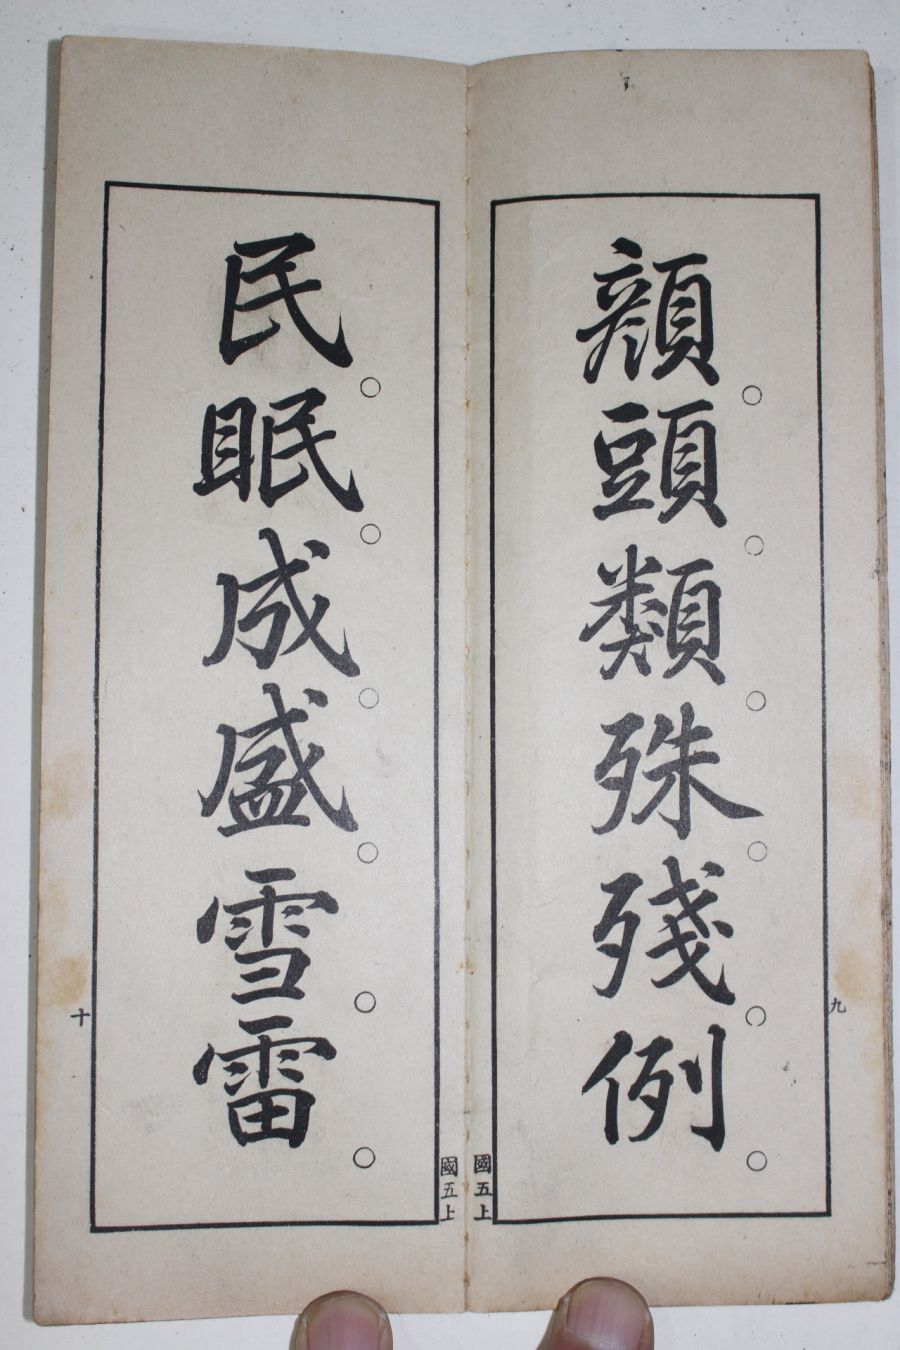 顔頭類殊残例
九
國五上
民眠成盛雪雷
十
國五上